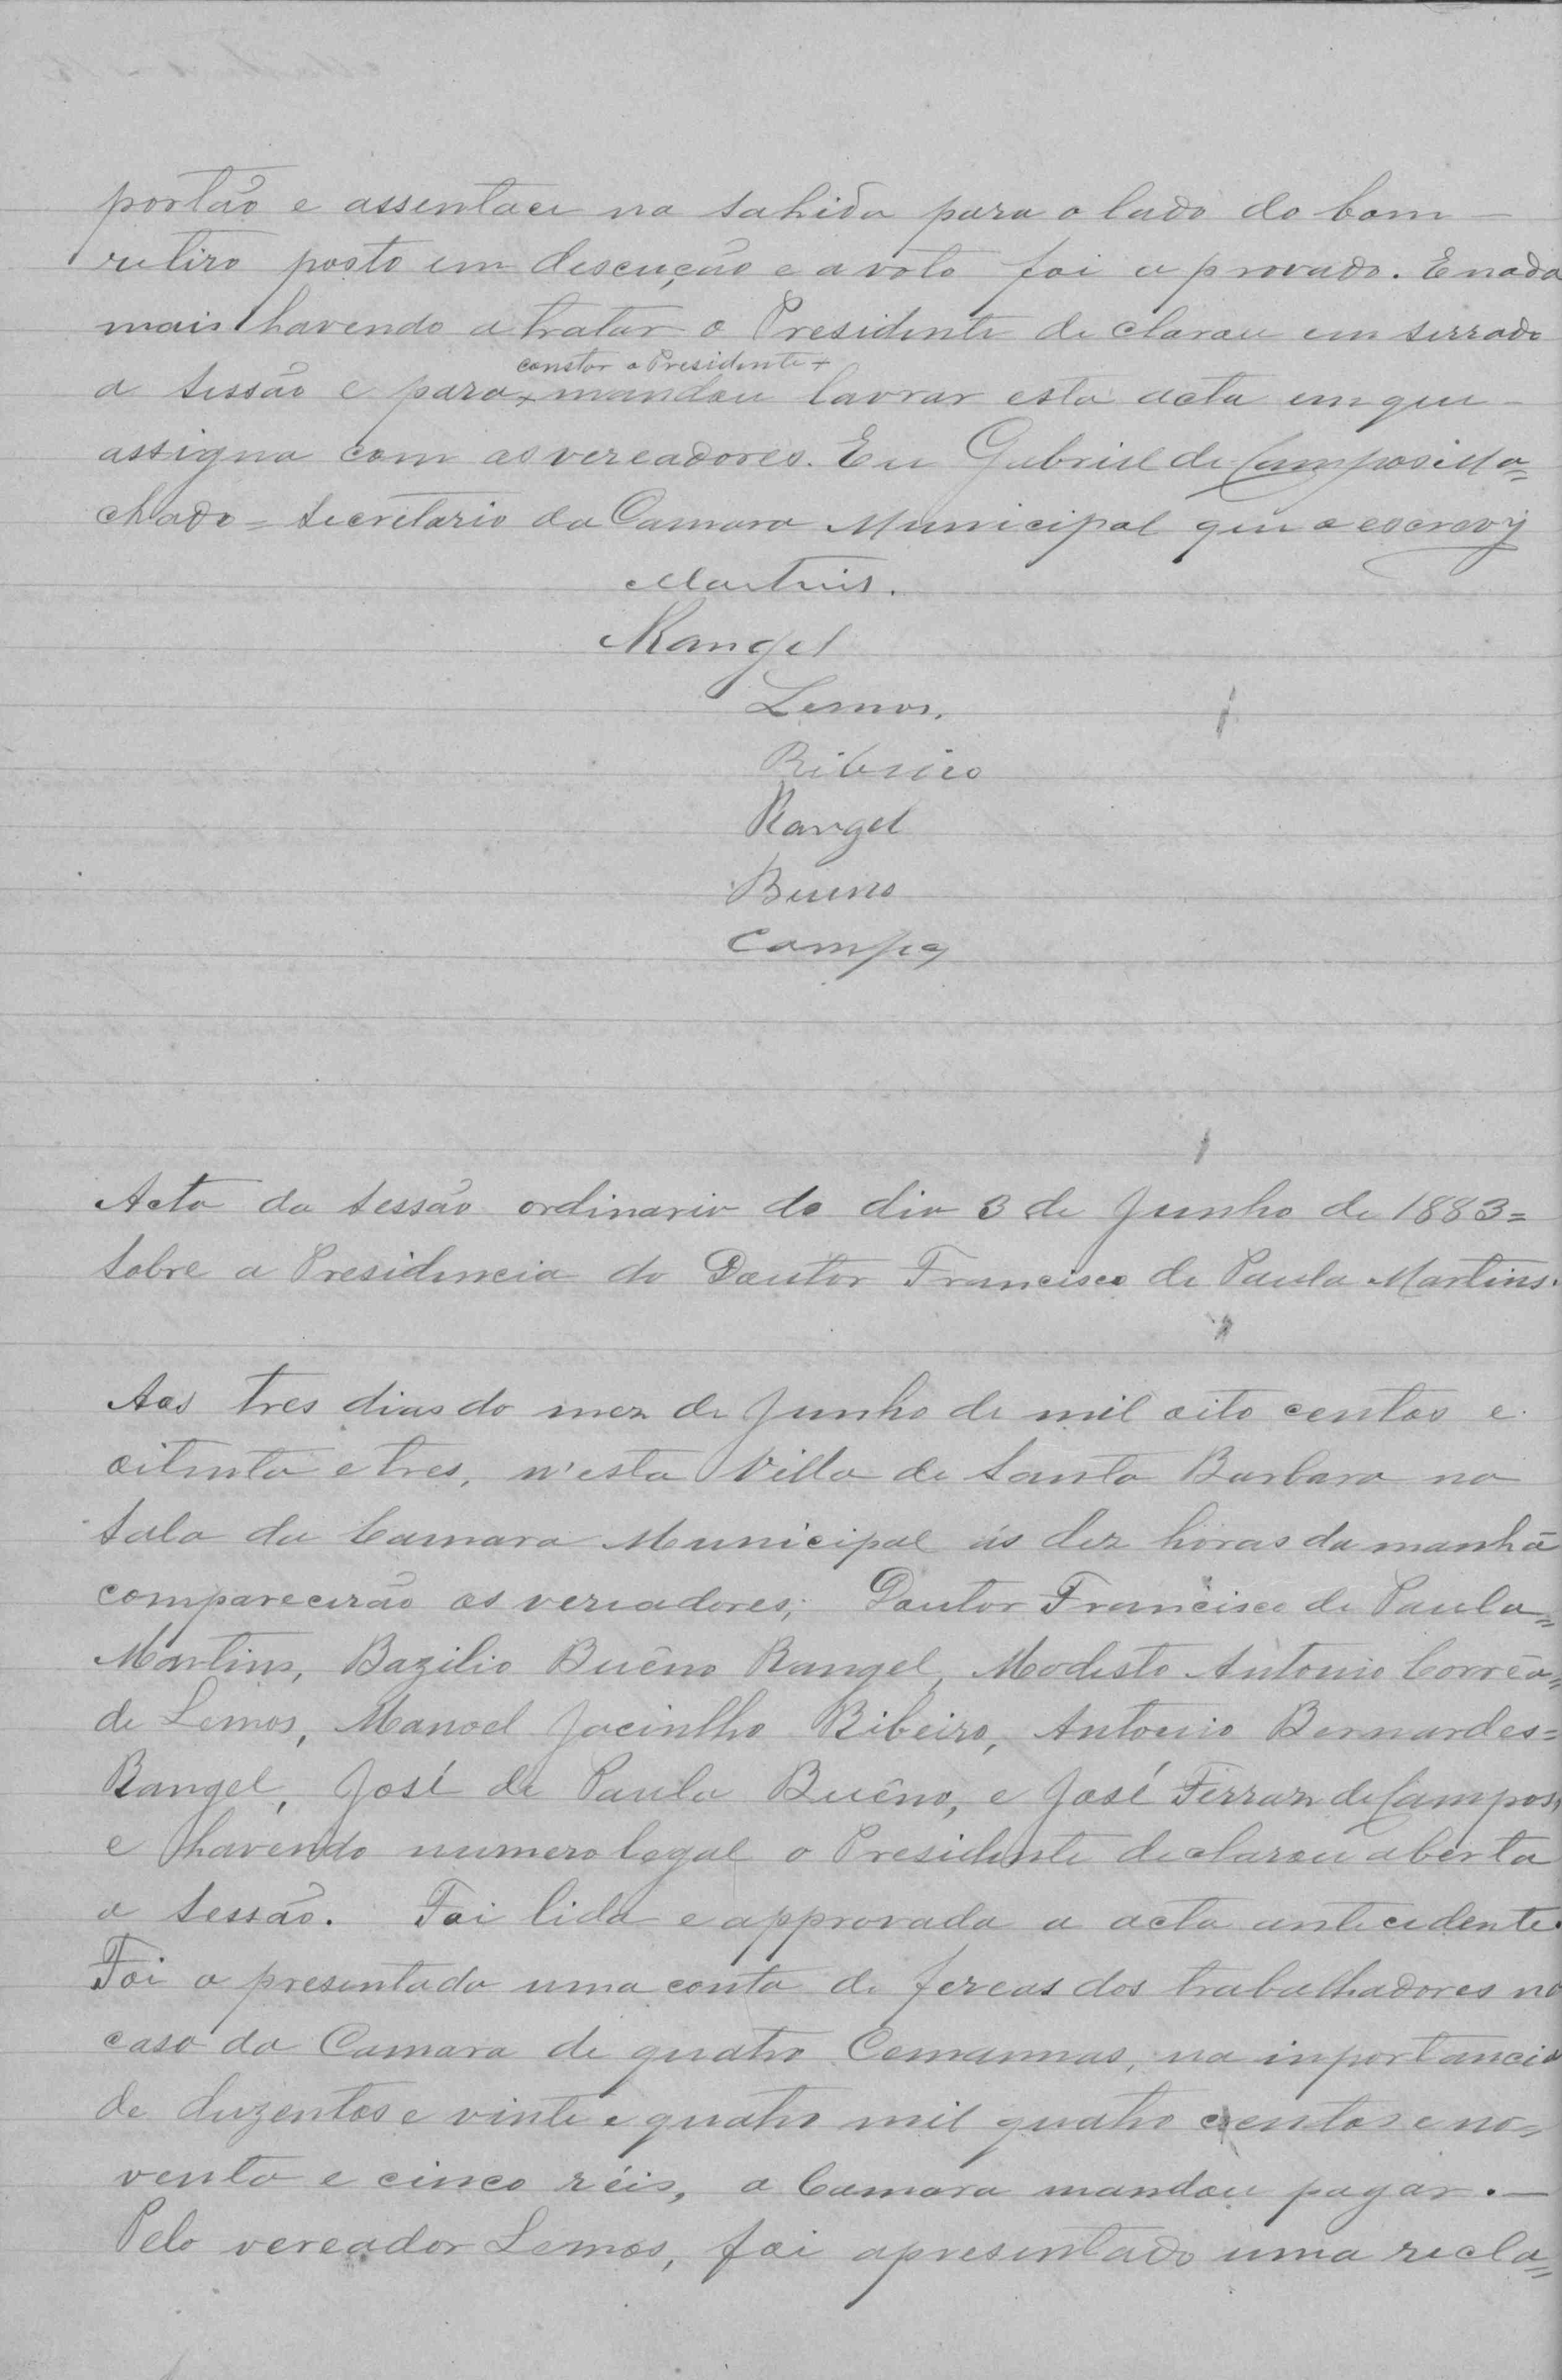 portão e assentace na sahida para o lado do bom-
retiro posto em descução e a voto foi a provado. E nada
mais havendo a tratar o Presidente de clarou em serrado
constar o Presidente +
a sessão e para + mandou lavrar esta acta em que-
assigna com os vereadores. Eu Gabriel de Campos Ma=
chado = secretario da Camara Municipal que o escrevy
Martins.
Rangel
Lemos.
Ribeiro
Rangel
Bueno
Campos
Acta da sessão ordinaria do dia 3 de Junho de 1883=
sobre a Presidencia do Doutor Francisco de Paula Martins.
Aos tres dias do mez de Junho de mil oito centos e
oitenta e tres, n'esta Villa de Santa Barbara na
sala da Camara Municipal ás dez horas da manhã
comparecerão os vereadores; Doutor Francisco de Paula=
Martins, Bazilio Buêno Rangel, Modesto Antonio Corrêa=
de Lemos, Manoel Jacintho Ribeiro, Antonio Bernardes=
Rangel, José de Paula Buêno, e José Ferraz de Campos,
e havendo numero legal o Presidente declarou aberta
a sessão. Foi lida e approvada a acta antecedente.
Foi a presentada uma conta de fereas dos trabalhadores na
casa da Camara de quatro Cemannas, na inportancia
de duzentos e vinte e quatro mil quatro centos e no=
venta e cinco réis, a Camara mandou pagar.-
Pelo vereador Lemos, foi apresentado uma recla=